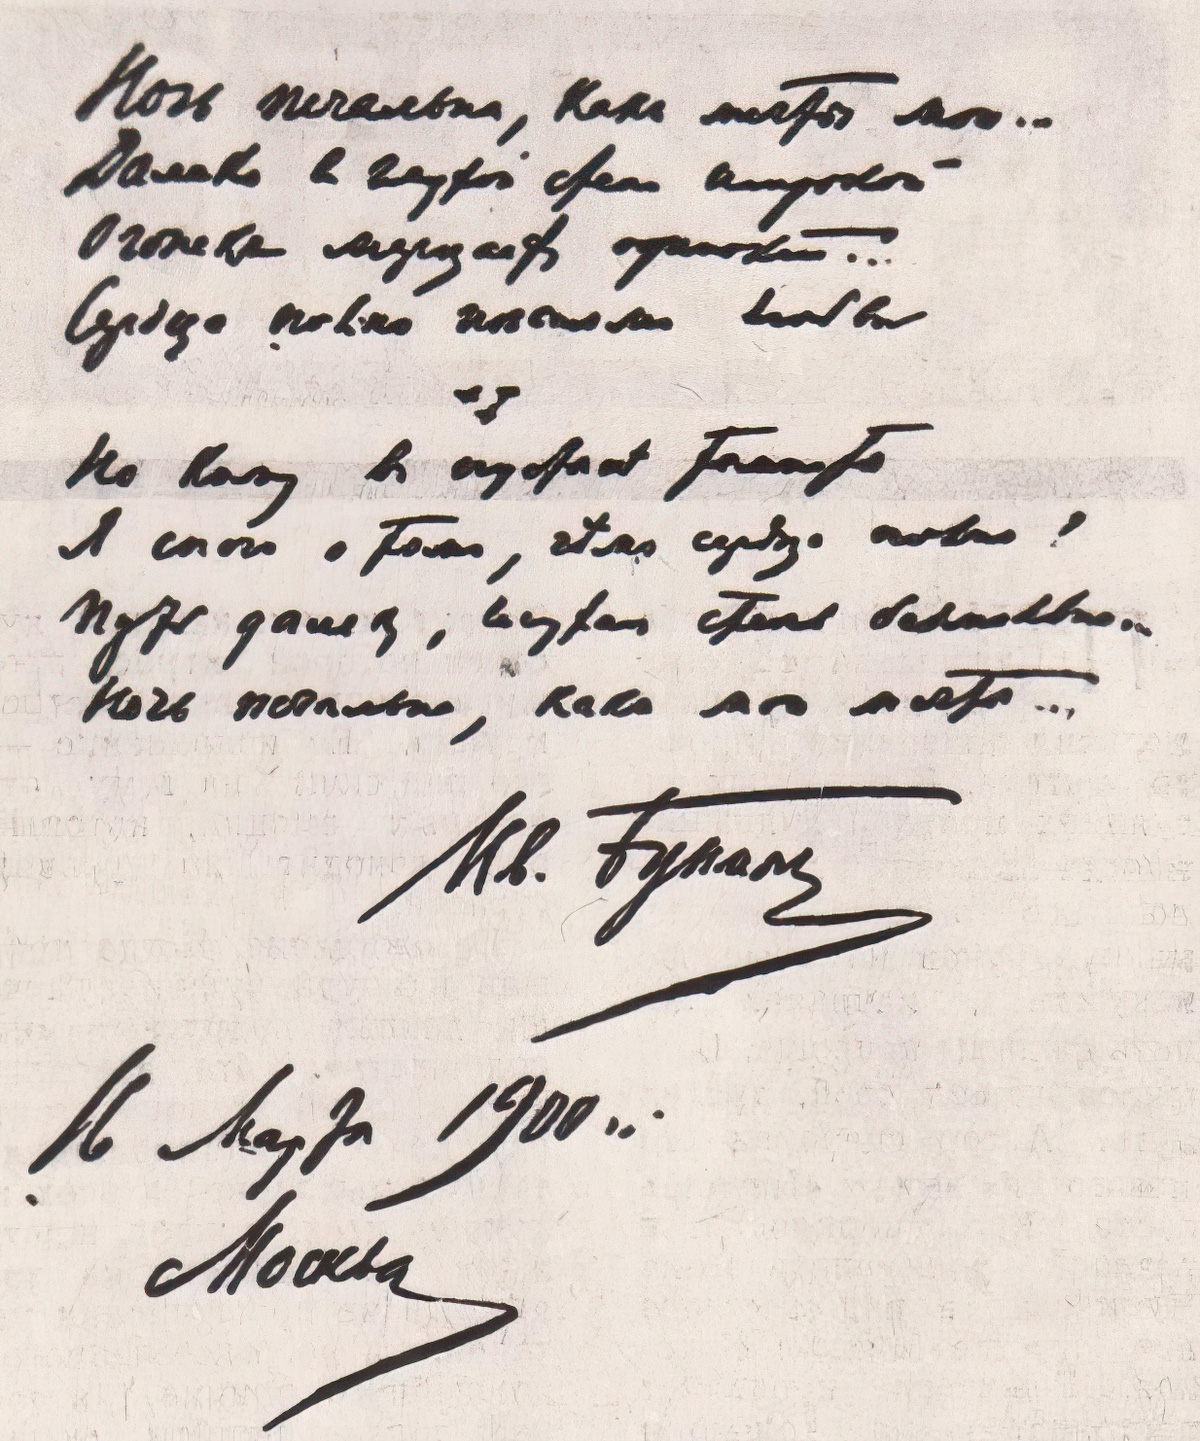 Ночь печальна, какъ мечты мои...
Далеко в глухой степи широкой
Огонекъ мерцаетъ одинокий...
Сердце полно любви
Но кому
Я о томъ, чѣмъ сердце полно!
Путь далекъ, глухая степь безмолвна...
Ночь печальна, какъ мои мечты...
Ив. Бунинъ
16 Марта 1900 г.
Москва